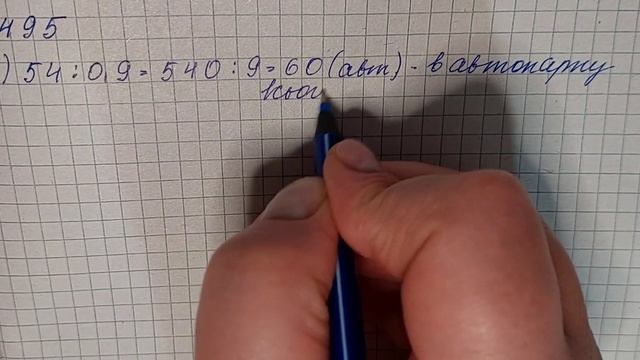 495
) 54 : 0,9 = 540 : 9 = 60 (авт) - в автопарку
всьог